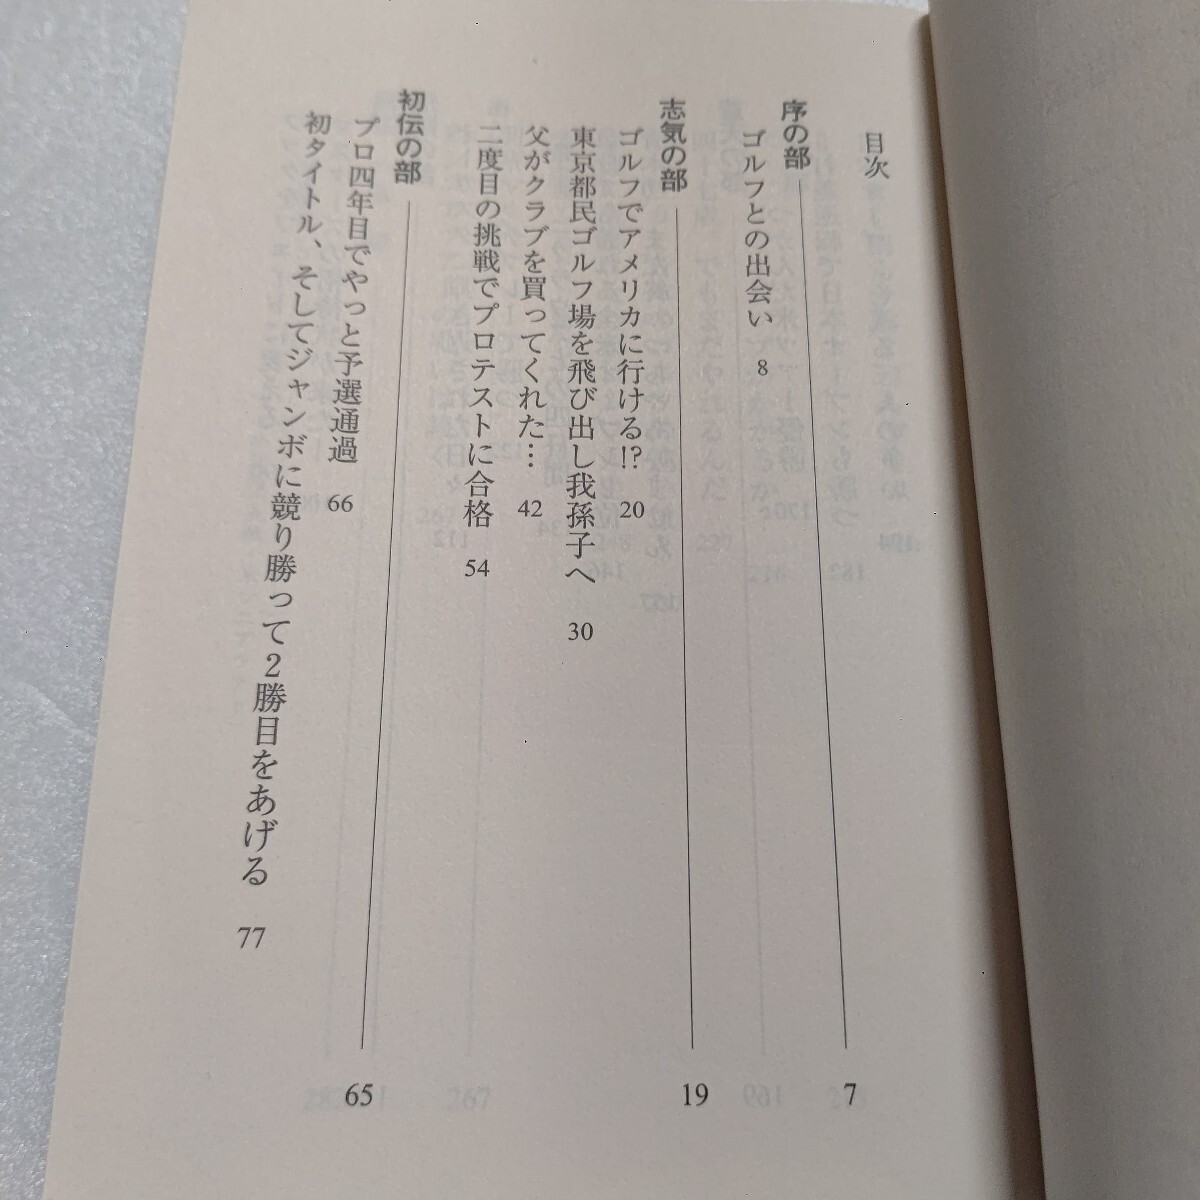 目次
序の部 7
ゴルフとの出会い 8
志気の部 19
ゴルフでアメリカに行ける!? 20
東京都民ゴルフ場を飛び出し我孫子へ 30
父がクラブを買ってくれた… 42
二度目の挑戦でプロテストに合格 54
初伝の部 65
プロ四年目でやっと予選通過 66
初タイトル、そしてジャンボに競り勝って2勝目をあげる 77